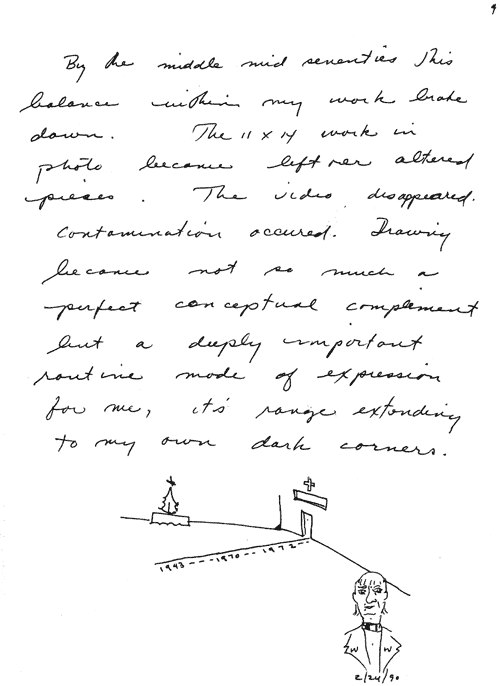 9
By the middle mid seventies this
balance within my work broke
down. The 11 x 14 work in
photo became left over altered
pieses. The video disappeared.
Contamination occured. Drawing
became not so much a
perfect conceptual complement
but a deeply important
routine mode of expression
for me, it's range extending
to my own dark corners.
1943 --- 1970 -- 1972 --
W W
2/24/90